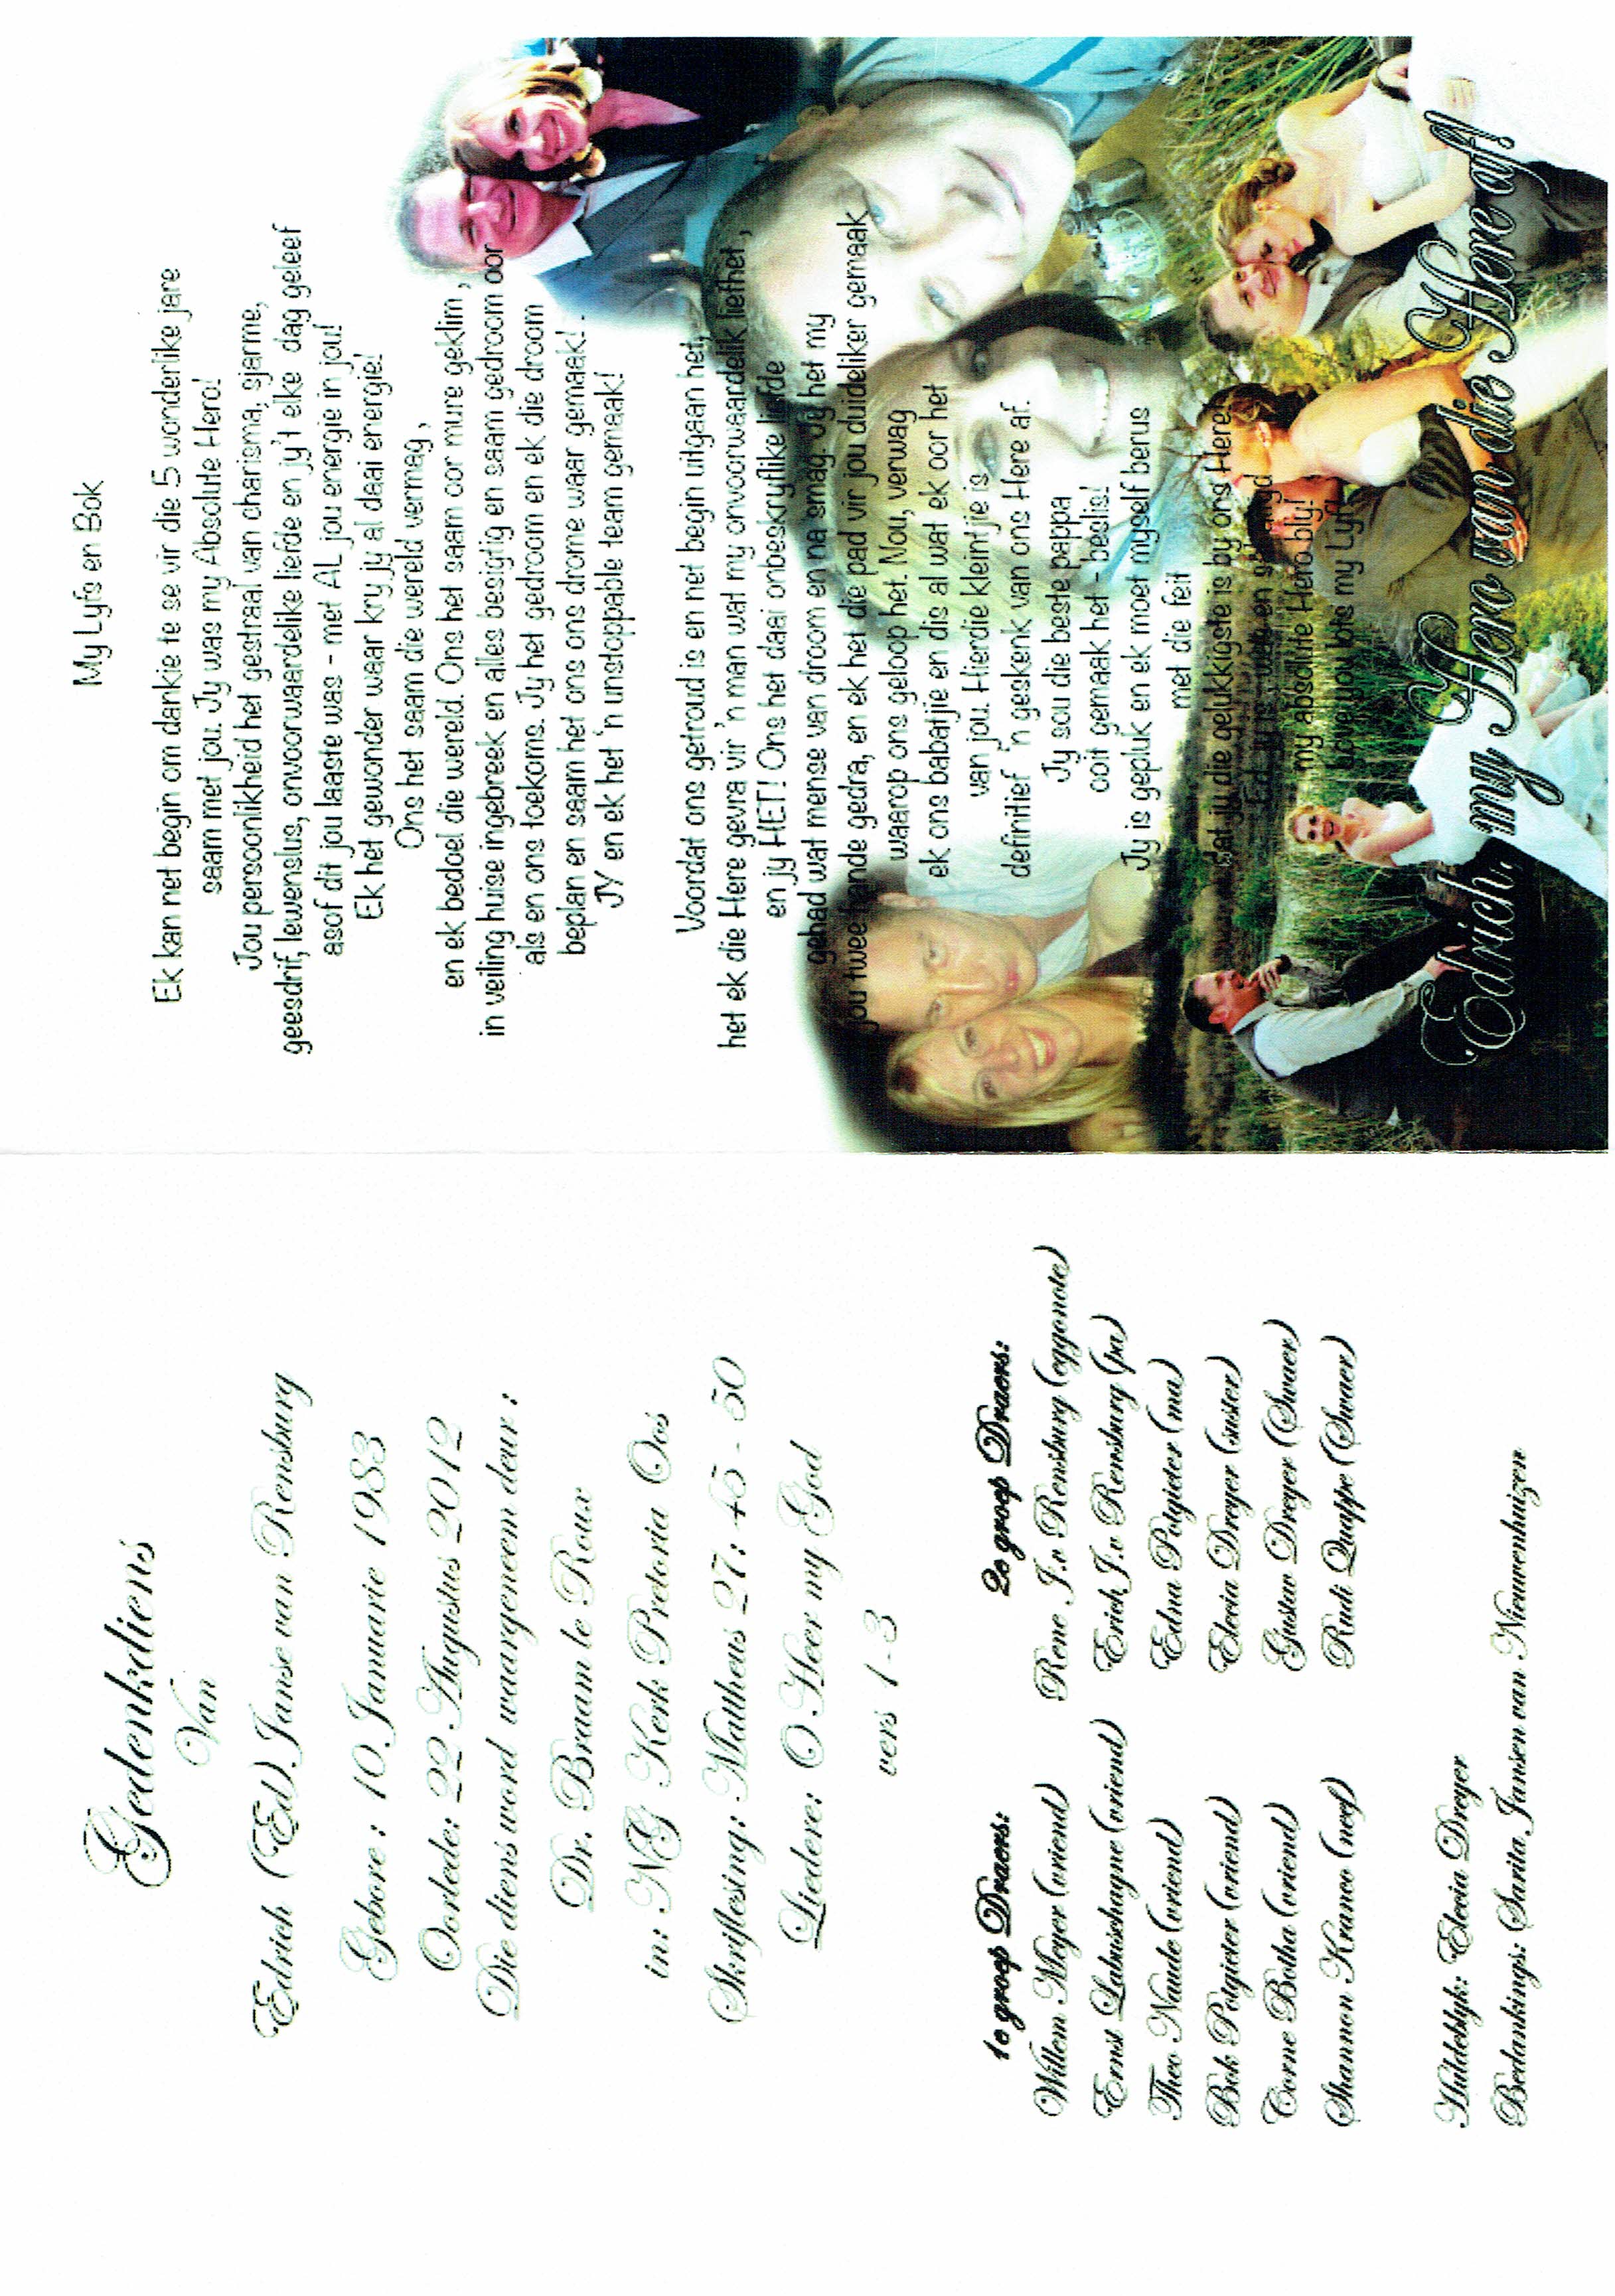 Gedenkdiens
Van
Edrich (Ed) Janse van Rensburg
Gebore : 10 Januarie 1983
Oorlede: 22 Augustus 2012
Die diens word waargeneem deur :
Dr. Braam le Roux
in: NG Kerk Pretoria Oos
Skriflesing: Mattheus 27: 45 - 50
Liedere: O Heer my God
vers 1-3
1e groep Draers:
Willem Meyer (vriend)
Ernst Labuschagne (vriend)
Theo Naude (vriend)
Bok Potgieter (vriend)
Corne Botha (vriend)
Shannon Kramco (neef)
2e groep Draers:
Rene J.v Rensburg (eggenote)
Erich J.v Rensburg (pa)
Edna Potgieter (ma)
Elecia Dreyer (suster)
Gustav Dreyer (Swaer)
Rudi Quappe (Swaer)
Huldeblyk: Elecia Dreyer
Bedankings: Sarita Jansen van Nieuwenhuizen
My Lyfs en Bok
Ek kan net begin om dankie te se vir die 5 wonderlike jare
saam met jou. Jy was my Absolute Hero!
Jou persoonlikheid het gestraal van charisma, sjarme,
geesdrif, lewenslus, onvoorwaardelike liefde en jy't elke dag geleef
asof dit jou laaste was - met AL jou energie in jou!
Ek het gewonder waar kry jy al daai energie!
Ons het saam die wereld vermag ,
en ek bedoel die wereld. Ons het saam oor mure geklim ,
in veiling huise ingebreek en alles besigtig en saam gedroom oor
als en ons toekoms. Jy het gedroom en ek die droom
beplan en saam het ons ons drome waar gemaak! .
JY en ek het 'n unstoppable team gemaak!
Voordat ons getroud is en net begin uitgaan het,
het ek die Here gevra vir 'n man wat my onvoorwaardelik liefhet ,
en jy HET! Ons het daai onbeskryflike liefde
gehad wat mense van droom en na smag. Jy het my
jou twee hande gedra, en ek het die pad vir jou duideliker gemaak
waarop ons geloop het. Nou, verwag
ek ons babatjie en dis al wat ek oor het
van jou. Hierdie kleintjie is
definitief 'n geskenk van ons Here af.
Jy sou die beste pappa
ooit gemaak het - beslis!
Jy is gepluk en ek moet myself berus
met die feit
dat jy die gelukkigste is by ons Here!
Ed, jy is was en sal altyd
my absolute Hero bly!
Love you lots my Lyfi
Edrich, my Hero van die Here af!